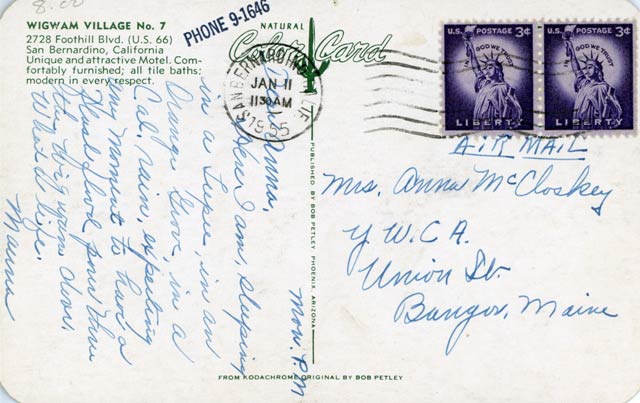 8.00
WIGWAM VILLAGE No. 7
2728 Foothill Blvd. (U.S. 66)
San Bernardino, California
Unique and attractive Motel. Com-
fortably furnished; all tile baths;
modern in every respect.
PHONE 9-1646
NATURAL
Color Card
SAN BERNARDINO CALIF
JAN 11
11 30 AM
1955
U.S. POSTAGE 3¢
IN GOD WE TRUST
LIBERTY
U.S. POSTAGE 3¢
IN GOD WE TRUST
LIBERTY
AIR MAIL
Mrs. Anna McCloskey
Y.W.C.A.
Union St.
Bangor, Maine
Mon. P.M
Dear Anna,
Here I am, sleeping
in a Tepee, in an
Orange Grove, in a
Cal. rain, expecting
any moment to have a
flash flood pour thru
the Wigwam door.
What a life.
PUBLISHED BY BOB PETLEY, PHOENIX, ARIZONA
FROM KODACHROME ORIGINAL BY BOB PETLEY